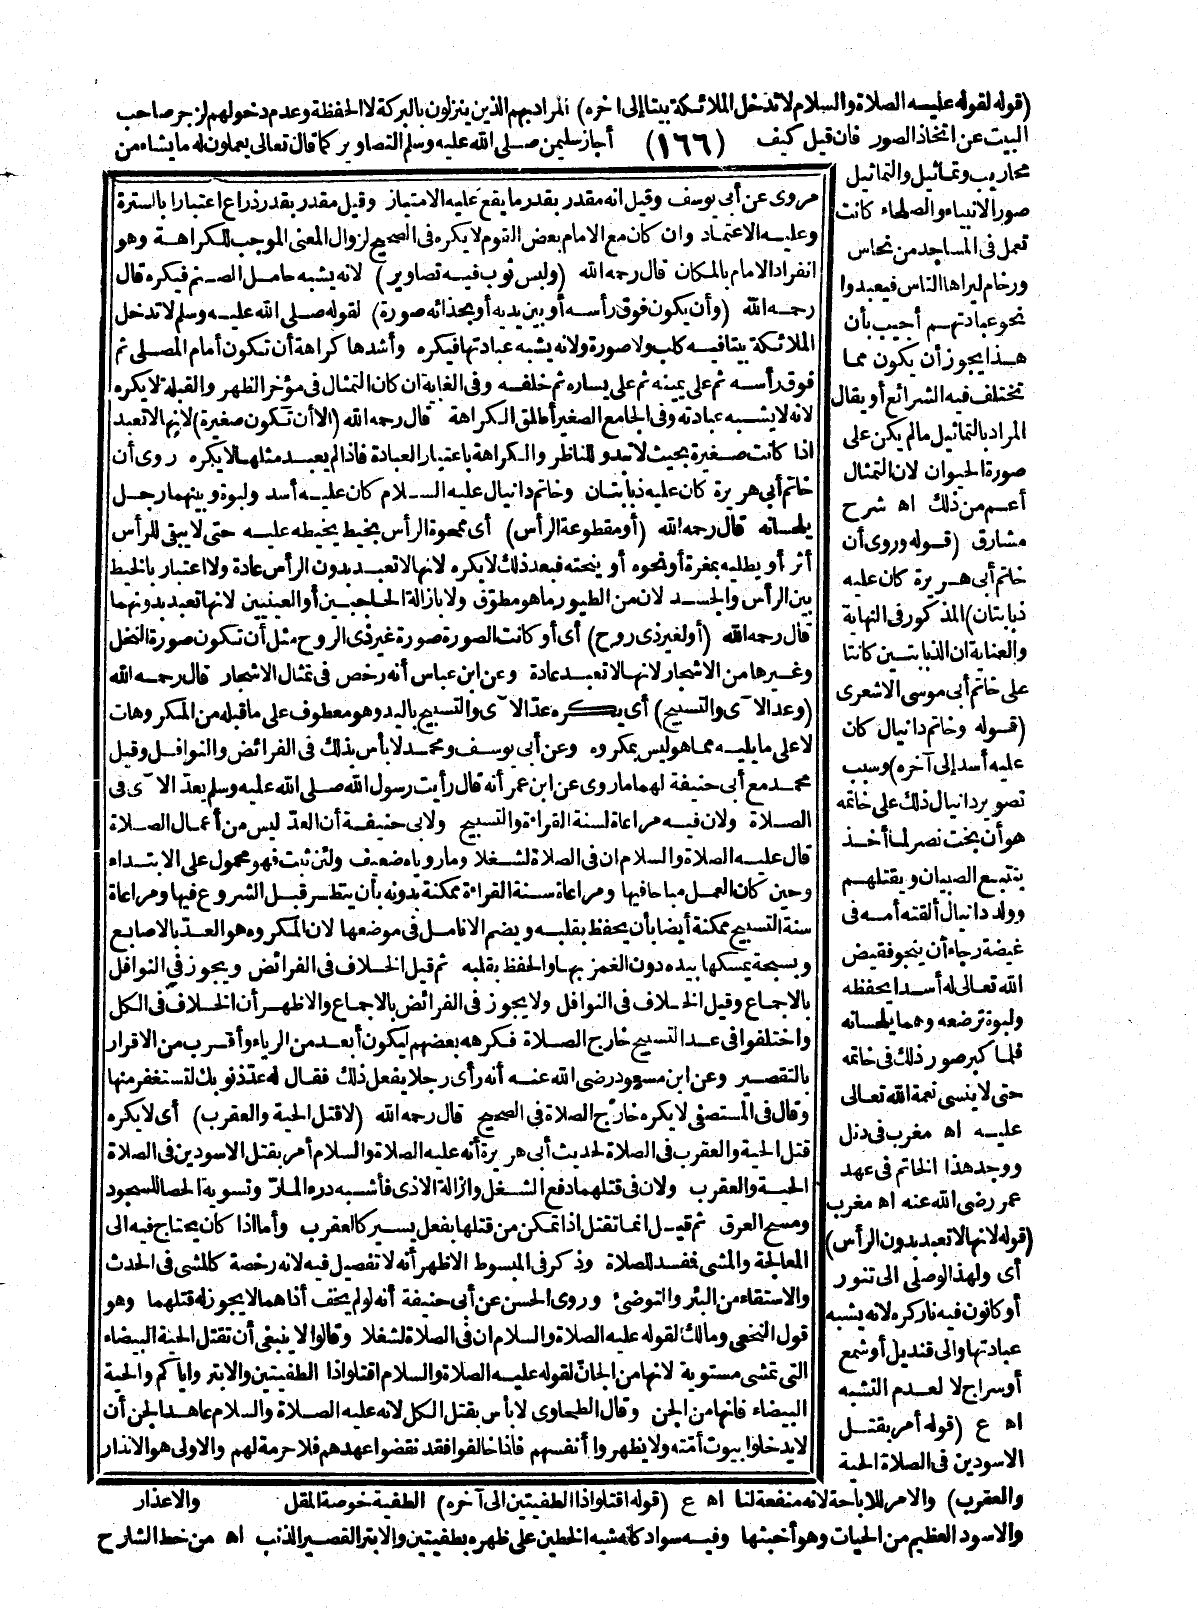 (قوله لقوله عليه الصلاة والسلام لا تدخل الملائكة بيتا إلى آخره) المراد بهم الذين ينزلون بالبركة لا الحفظة وعدم دخولهم لزجر صاحب
البيت عن اتخاذ الصور فان قيل كيف (١٦٦) أجاز سليمن صلى الله عليه وسلم التصاوير كما قال تعالى يعملون له ما يشاء من
محاريب وتماثيل والتماثيل
صور الانبياء والصلحاء كانت
تعمل فى المساجد من نحاس
ورخام ليراها الناس فيعبدوا
نحو عبادتهم أجيب بأن
هذا يجوز أن يكون مما
تختلف فيه الشرائع أو يقال
المراد بالتماثيل ما لم يكن على
صورة الحيوان لان التمثال
أعم من ذلك اه شرح
مشارق (قوله وروى أن
خاتم أبى هريرة كان عليه
ذبابتان) المذكور فى النهاية
والعناية ان الذبابتين كانتا
على خاتم أبى موسى الاشعرى
(قوله وخاتم دانيال كان
عليه أسد إلى آخره) وسبب
تصوير دانيال ذلك على خاتمه
هو أن بخت نصر لما أخذ
يتتبع الصبيان ويقتلهم
وولد دانيال ألقته أمه فى
غيضة رجاء أن ينجو فقيض
الله تعالى له أسدا يحفظه
ولبوة ترضعه وهما يلحسانه
فلما كبر صور ذلك فى خاتمه
حتى لا ينسى نعمة الله تعالى
عليه اه مغرب فى دنل
ووجد هذا الخاتم فى عهد
عمر رضى الله عنه اه مغرب
(قوله لانها لا تعبد بدون الرأس)
أى ولهذا لو صلى الى تنور
أو كانون فيه نار كره لانه يشبه
عبادتها والى قنديل أو شمع
أو سراج لا لعدم التشبه
اه ع (قوله أمر بقتل
الاسودين فى الصلاة الحية
مروى عن أبى يوسف وقيل انه مقدر بقدر ما يقع عليه الامتياز وقيل مقدر بقدر ذراع اعتبارا بالسترة
وعليه الاعتماد وان كان مع الامام بعض القوم لا يكره فى الصحيح لزوال المعنى الموجب للكراهة وهو
انفراد الامام بالمكان قال رحمه الله (ولبس ثوب فيه تصاوير) لانه يشبه حامل الصنم فيكره قال
رحمه الله (وأن يكون فوق رأسه أو بين يديه أو بحذائه صورة) لقوله صلى الله عليه وسلم لا تدخل
الملائكة بيتا فيه كلب ولا صورة ولانه يشبه عبادتها فيكره وأشدها كراهة أن تكون أمام المصلى ثم
فوق رأسه ثم على يمينه ثم على يساره ثم خلفه وفى الغاية ان كان التمثال فى مؤخر الظهر والقبلة لا يكره
لانه لا يشبه عبادته وفى الجامع الصغير أطلق الكراهة قال رحمه الله (الا أن تكون صغيرة) لانها لا تعبد
اذا كانت صغيرة بحيث لا تبدو للناظر والكراهة باعتبار العبادة فاذا لم يعبد مثلها لا يكره روى أن
خاتم أبى هريرة كان عليه ذبابتان وخاتم دانيال عليه السلام كان عليه أسد ولبوة وبينهما رجل
يلحسانه قال رحمه الله (أو مقطوعة الرأس) أى ممحوة الرأس بخيط يخيطه عليه حتى لا يبقى للرأس
أثر أو يطليه بمغرة أو نحوه أو ينحته فبعد ذلك لا يكره لانها لا تعبد بدون الرأس عادة ولا اعتبار بالخيط
بين الرأس والجسد لان من الطيور ما هو مطوّق ولا بازالة الحاجبين أو العينين لانها تعبد بدونهما
قال رحمه الله (أو لغير ذى روح) أى أو كانت الصورة صورة غير ذى الروح مثل أن تكون صورة النخل
وغيرها من الاشجار لانها لا تعبد عادة وعن ابن عباس أنه رخص فى تمثال الاشجار قال رحمه الله
(وعد الآى والتسبيح) أى يكره عدّ الآى والتسبيح باليد وهو معطوف على ما قبله من المكروهات
لا على ما يليه مما هو ليس بمكروه وعن أبى يوسف ومحمد لا بأس بذلك فى الفرائض والنوافل وقيل
محمد مع أبى حنيفة لهما ما روى عن ابن عمر أنه قال رأيت رسول الله صلى الله عليه وسلم يعدّ الآى فى
الصلاة ولان فيه مراعاة لسنة القراءة والتسبيح ولابى حنيفة أن العدّ ليس من أعمال الصلاة
قال عليه الصلاة والسلام ان فى الصلاة لشغلا وما روياه ضعيف ولئن ثبت فهو محمول على الابتداء
وحين كان العمل مباحا فيها ومراعاة سنة القراءة ممكنة بدونه بأن ينظر قبل الشروع فيها ومراعاة
سنة التسبيح ممكنة أيضا بأن يحفظ بقلبه ويضم الانامل فى موضعها لان المكروه هو العدّ بالاصابع
وبسبحة يمسكها بيده دون الغمز بها والحفظ بقلبه ثم قيل الخلاف فى الفرائض ويجوز في النوافل
بالاجماع وقيل الخلاف فى النوافل ولا يجوز فى الفرائض بالاجماع والاظهر أن الخلاف فى الكل
واختلفوا فى عد التسبيح خارج الصلاة فكرهه بعضهم ليكون أبعد من الرياء وأقرب من الاقرار
بالتقصير وعن ابن مسعود رضى الله عنه أنه رأى رجلا يفعل ذلك فقال له عدّ ذنوبك لتستغفر منها
وقال فى المستصفى لا يكره خارج الصلاة فى الصحيح قال رحمه الله (لا قتل الحية والعقرب) أى لا يكره
قتل الحية والعقرب فى الصلاة لحديث أبى هريرة أنه عليه الصلاة والسلام أمر بقتل الاسودين فى الصلاة
الحية والعقرب ولان فى قتلهما دفع الشغل وازالة الاذى فأشبه درء المارّ وتسوية الحصا للسجود
ومسح العرق ثم قيل انما تقتل اذا تمكن من قتلها بفعل يسير كالعقرب وأما اذا كان يحتاج فيه الى
المعالجة والمشى فمفسد للصلاة وذكر فى المبسوط الاظهر أنه لا تفصيل فيه لانه رخصة كالمشى فى الحدث
والاستقاء من البئر والتوضئ وروى الحسن عن أبى حنيفة أنه لو لم يخف أذاهما لا يجوز له قتلهما وهو
قول النخعى ومالك لقوله عليه الصلاة والسلام ان فى الصلاة لشغلا وقالوا لا ينبغى أن تقتل الحية البيضاء
التى تمشى مستوية لانها من الجانّ لقوله عليه الصلاة والسلام اقتلوا ذا الطفيتين والابتر واياكم والحية
البيضاء فانها من الجن وقال الطحاوى لا بأس بقتل الكل لانه عليه الصلاة والسلام عاهد الجن أن
لا يدخلوا بيوت أمّته ولا يظهروا أنفسهم فاذا خالفوا فقد نقضوا عهدهم فلا حرمة لهم والاولى هو الانذار
والعقرب) والامر للاباحة لانه منفعة لنا اه ع (قوله اقتلوا ذا الطفيتين الى آخره) الطفية خوصة المقل والاعذار
والاسود العظيم من الحيات وهو أخبثها وفيه سواد كأنه شبه الخطين على ظهره بطفيتين والابتر القصير الذنب اه من خط الشارح